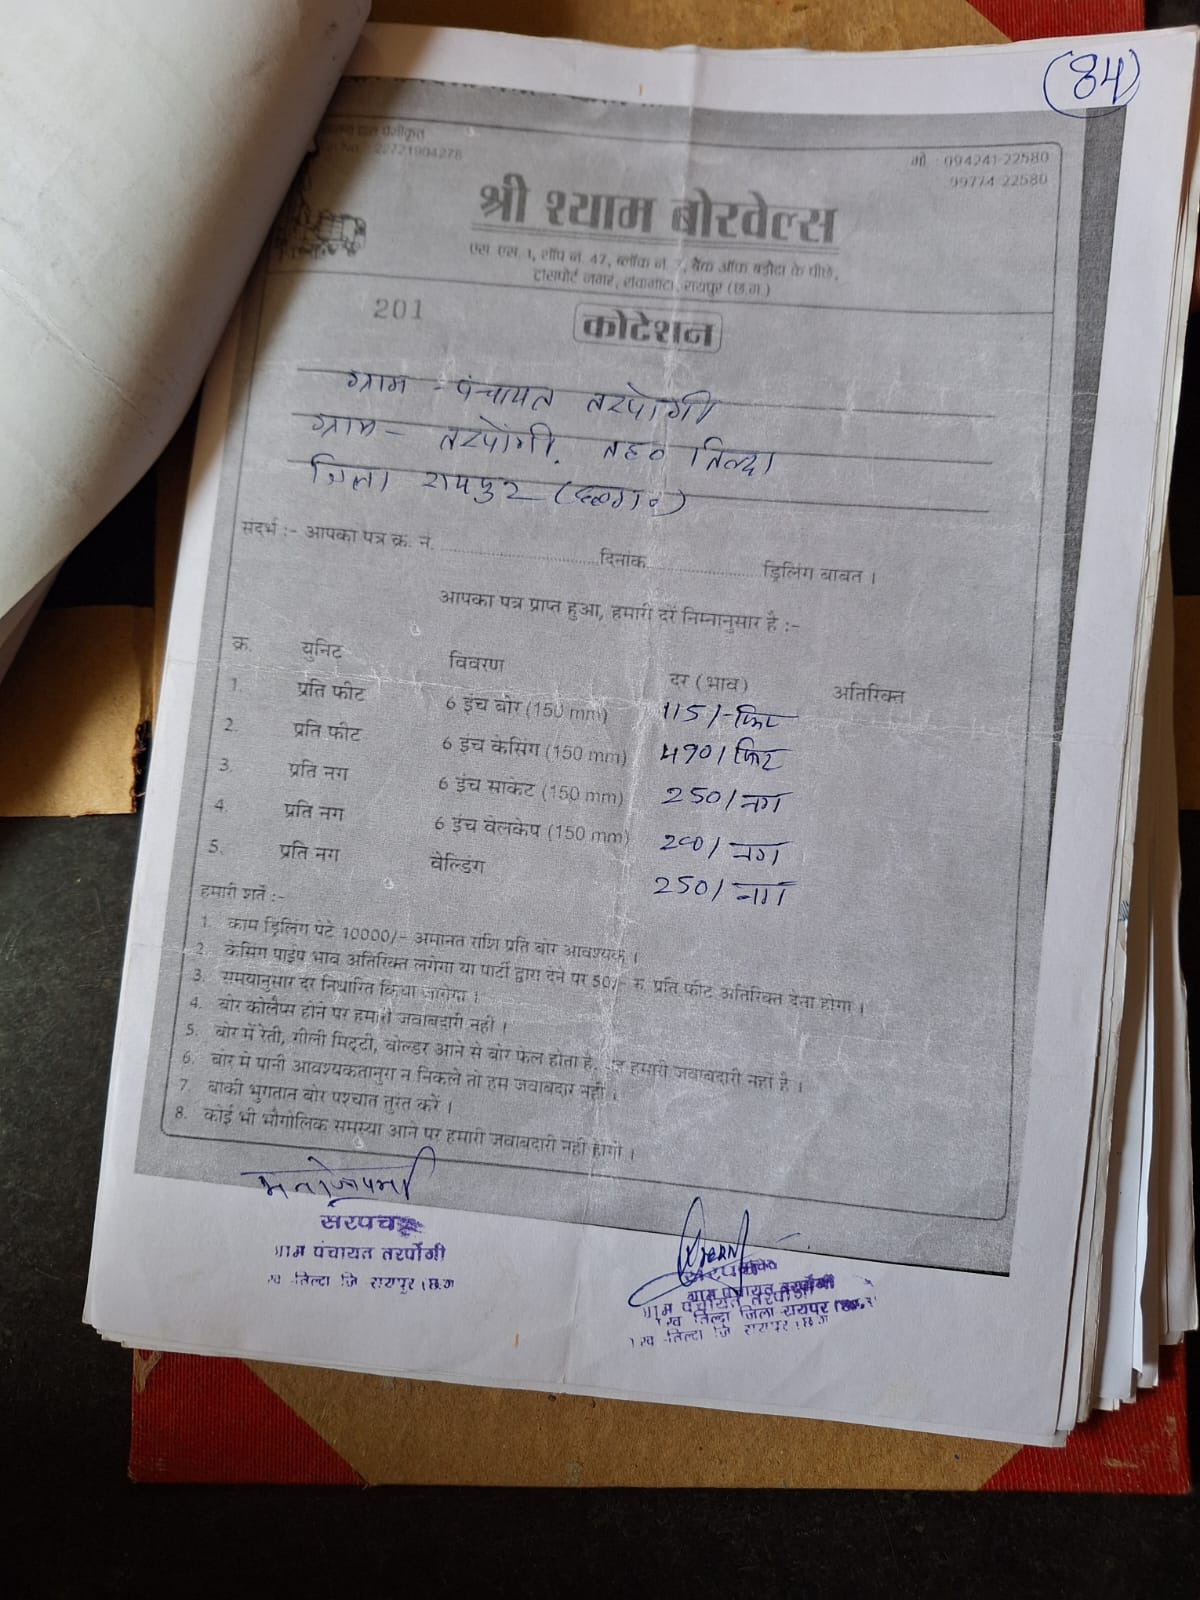 (84)
पंजीकृत
22721904278
मो. : 094241-22580
99774-22580
श्री श्याम बोरवेल्स
एस.एस. 1, शॉप नं. 47, ब्लॉक नं. 7, बैंक ऑफ बड़ौदा के पीछे,
ट्रांसपोर्ट नगर, रावांभाटा, रायपुर (छ.ग.)
201
कोटेशन
ग्राम - पंचायत तरपोंगी
ग्राम - तरपोंगी, तह० तिल्दा
जिला रायपुर
संदर्भ :- आपका पत्र क्र. नं. ............ दिनांक ............ ड्रिलिंग बाबत ।
आपका पत्र प्राप्त हुआ, हमारी दरें निम्नानुसार है :-
क्र. युनिट विवरण दर (भाव) अतिरिक्त
1. प्रति फीट 6 इंच बोर (150 mm) 115/- फिट
2. प्रति फीट 6 इंच केसिंग (150 mm) 490/ फिट
3. प्रति नग 6 इंच साकेट (150 mm) 250/ नग
4. प्रति नग 6 इंच वेलकेप (150 mm) 200/ नग
5. प्रति नग वेल्डिंग 250/ नग
हमारी शर्ते :-
1. काम ड्रिलिंग पेटे 10000/- अमानत राशि प्रति बोर आवश्यक ।
2. केसिंग पाईप भाव अतिरिक्त लगेगा या पार्टी द्वारा देने पर 50/- रु. प्रति फीट अतिरिक्त देना होगा ।
3. समयानुसार दर निर्धारित किया जायेगा ।
4. बोर कोलेप्स होने पर हमारी जवाबदारी नहीं ।
5. बोर में रेती, गीली मिट्टी, बोल्डर आने से बोर फेल होता है, हमारी जवाबदारी नहीं है ।
6. बोर में पानी आवश्यकतानुरा न निकले तो हम जवाबदार नहीं ।
7. बाकी भुगतान बोर पश्चात तुरंत करें ।
8. कोई भी भौगोलिक समस्या आने पर हमारी जवाबदारी नहीं होगी ।
सरपंच
ग्राम पंचायत तरपोंगी
तिल्दा जि रायपुर छ.ग
ग्राम पंचायत तरपोंगी
ग्राम पंचायत तरपोंगी
तिल्दा जिला रायपुर
तिल्दा जि रायपुर छ.ग